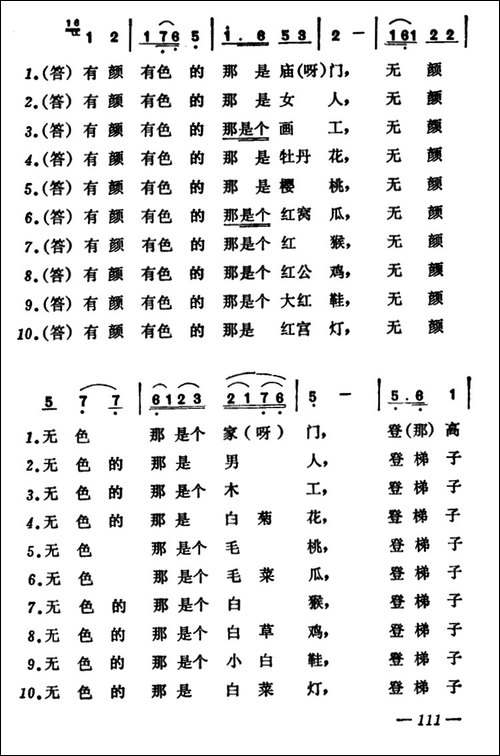 16 1 2 | 1 7 6 5 | 1 . 6 5 3 | 2 — | 1 6 1 2 2
1.(答)有颜 有色的 那 是 庙(呀)门, 无 颜
2.(答)有颜 有色的 那 是 女 人, 无 颜
3.(答)有颜 有色的 那是个 画 工, 无 颜
4.(答)有颜 有色的 那 是 牡丹 花, 无 颜
5.(答)有颜 有色的 那 是 樱 桃, 无 颜
6.(答)有颜 有色的 那是个 红窝 瓜, 无 颜
7.(答)有颜 有色的 那是个 红 猴, 无 颜
8.(答)有颜 有色的 那是个 红公 鸡, 无 颜
9.(答)有颜 有色的 那是个 大红 鞋, 无 颜
10.(答)有颜 有色的 那是 红宫 灯, 无 颜
5 7 7 | 6 1 2 3 2 1 7 6 | 5 — | 5 . 6 1
1.无色 那 是个 家(呀)门, 登(那)高
2.无色的 那 是 男 人, 登梯子
3.无色的 那 是个 木 工, 登梯子
4.无色的 那 是 白 菊 花, 登梯子
5.无色 那 是个 毛 桃, 登梯子
6.无色 那 是个 毛 菜 瓜, 登梯子
7.无色的 那 是个 白 猴, 登梯子
8.无色的 那 是个 白 草 鸡, 登梯子
9.无色的 那 是个 小 白 鞋, 登梯子
10.无色的 那 是 白 菜 灯, 登梯子
— 111 —